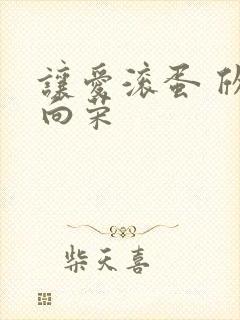 讓愛滚蛋 欣
向荣
柴天喜